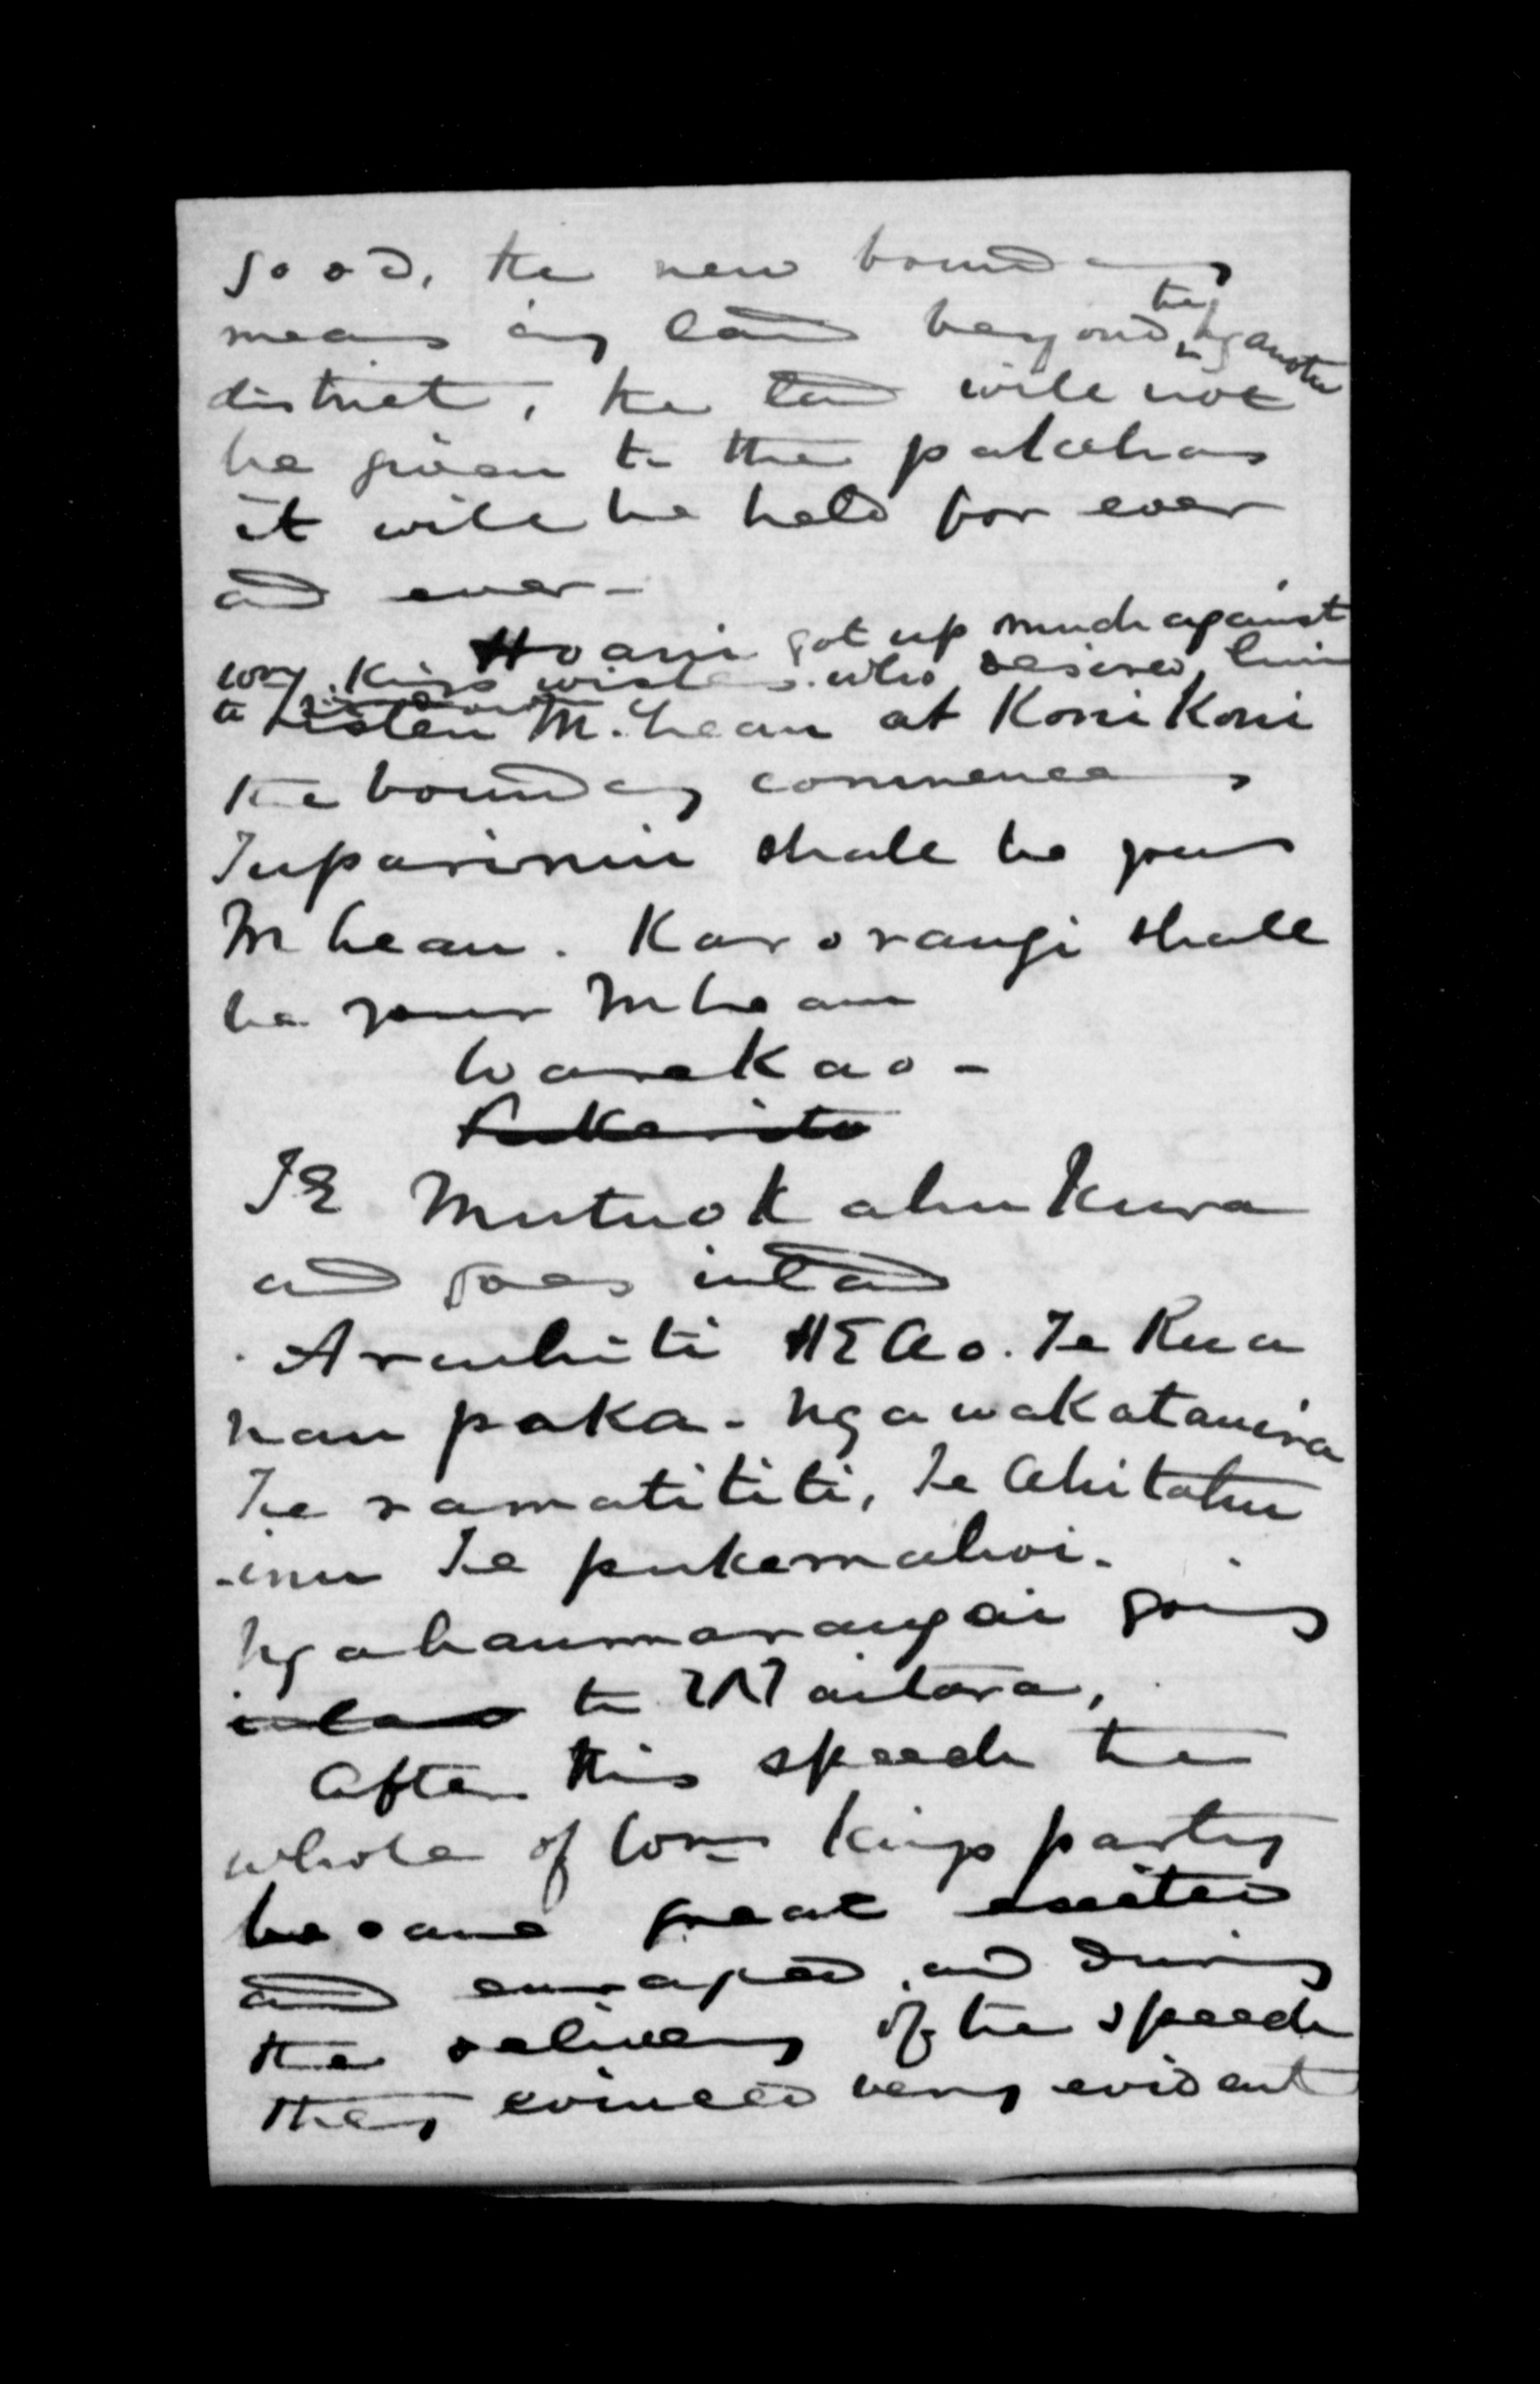 good, the new boundary
means any land beyond, they by another
district, the land will not
be given to the pakehas
it will be held for ever
and ever -
Hoani got up much against
Wm Kings wishes. who desired him
to sit down
Listen McLean at KoniKoni
the boundary commences
Tuparinini shall be yours
McLean. Karorangi shall
be yours McLean
Warekao -
Pukerito
TE MutuoKahuKura
and goes inland
Arauhiti HE Ao. Te Rua
nau paka - Ngawakatauira
Te ramatititi, Te Ahitahu
-inu Te pukemahoi.
Ngahaumarangai going
inland to Waitara,
After this speech the
whole of Wm Kings party
became great excited
and enraged, and during
the delivery of the speech
they evinced very evident